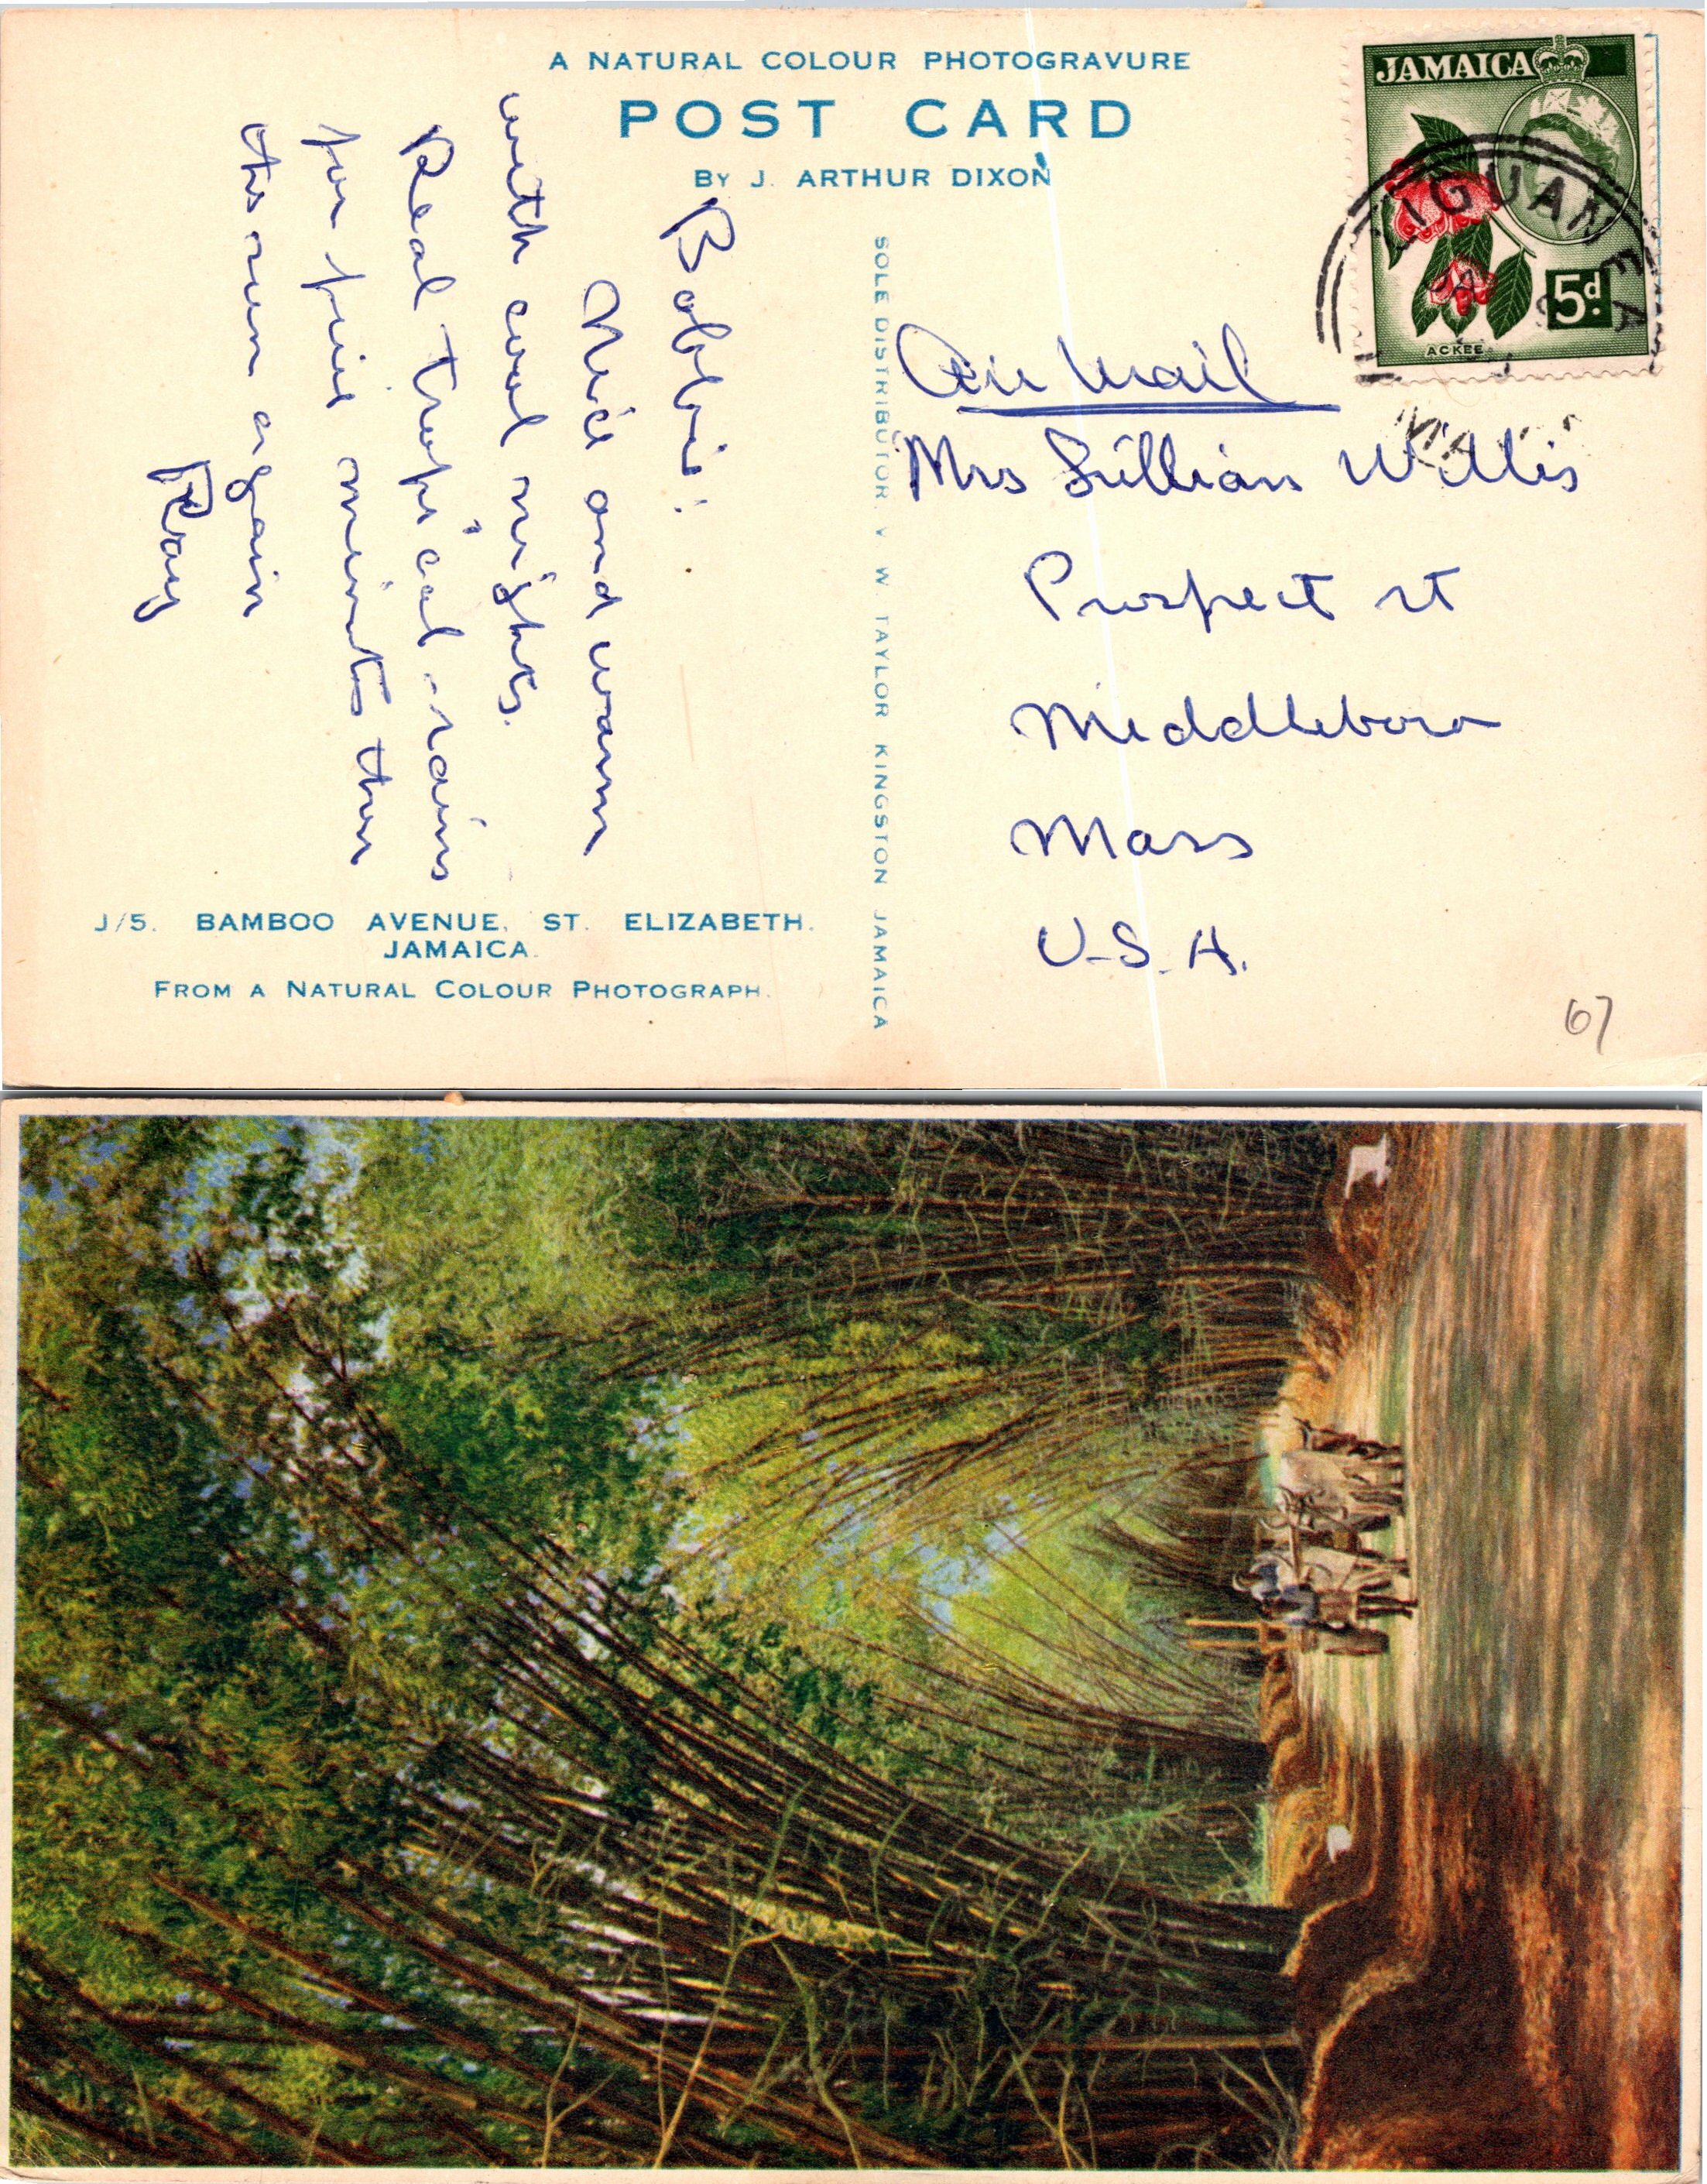 A NATURAL COLOUR PHOTOGRAVURE
POST CARD
BY J. ARTHUR DIXON
Bobbie:
Nice and warm
with cool nights.
Real tropical rains
for five minuts then
the sun again
Ray
J/5. BAMBOO AVENUE, ST. ELIZABETH.
JAMAICA.
FROM A NATURAL COLOUR PHOTOGRAPH.
SOLE DISTRIBUTOR. V. W. TAYLOR KINGSTON JAMAICA
JAMAICA
5d.
ACKEE
LIGUANEA
Air Mail
Mrs Lillian Willis
Prospect st
Middleboro
Mass
U.S.A.
67